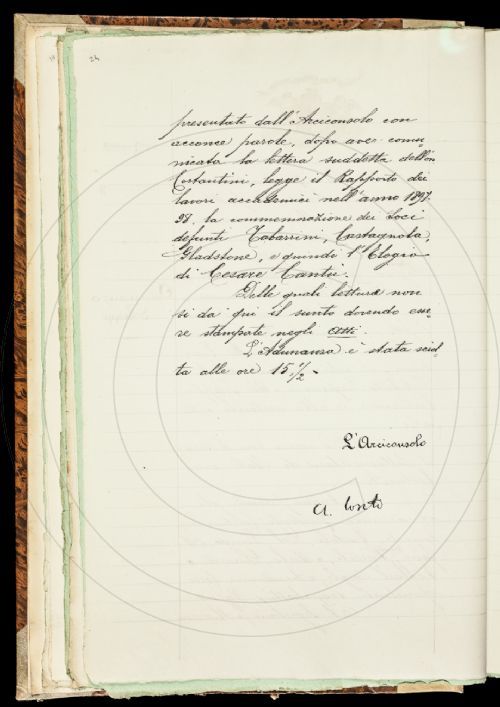 24
presentato dall'Arciconsolo con
acconce parole, dopo aver comu-
nicata la lettera suddetta dell'on
Costantini, legge il Rapporto dei
lavori accademici nell'anno 1897-
98, la commemorazione dei Soci
defunti Tabarrini, Castagnola,
Gladstone, e quindi l'Elogio
di Cesare Cantù.
Delle quali letture non
si dà qui il sunto dovendo esse-
re stampate negli Atti.
L'Adunanza è stata sciol-
ta alle ore 15 1/2 -
L'Arciconsolo
A. Conti